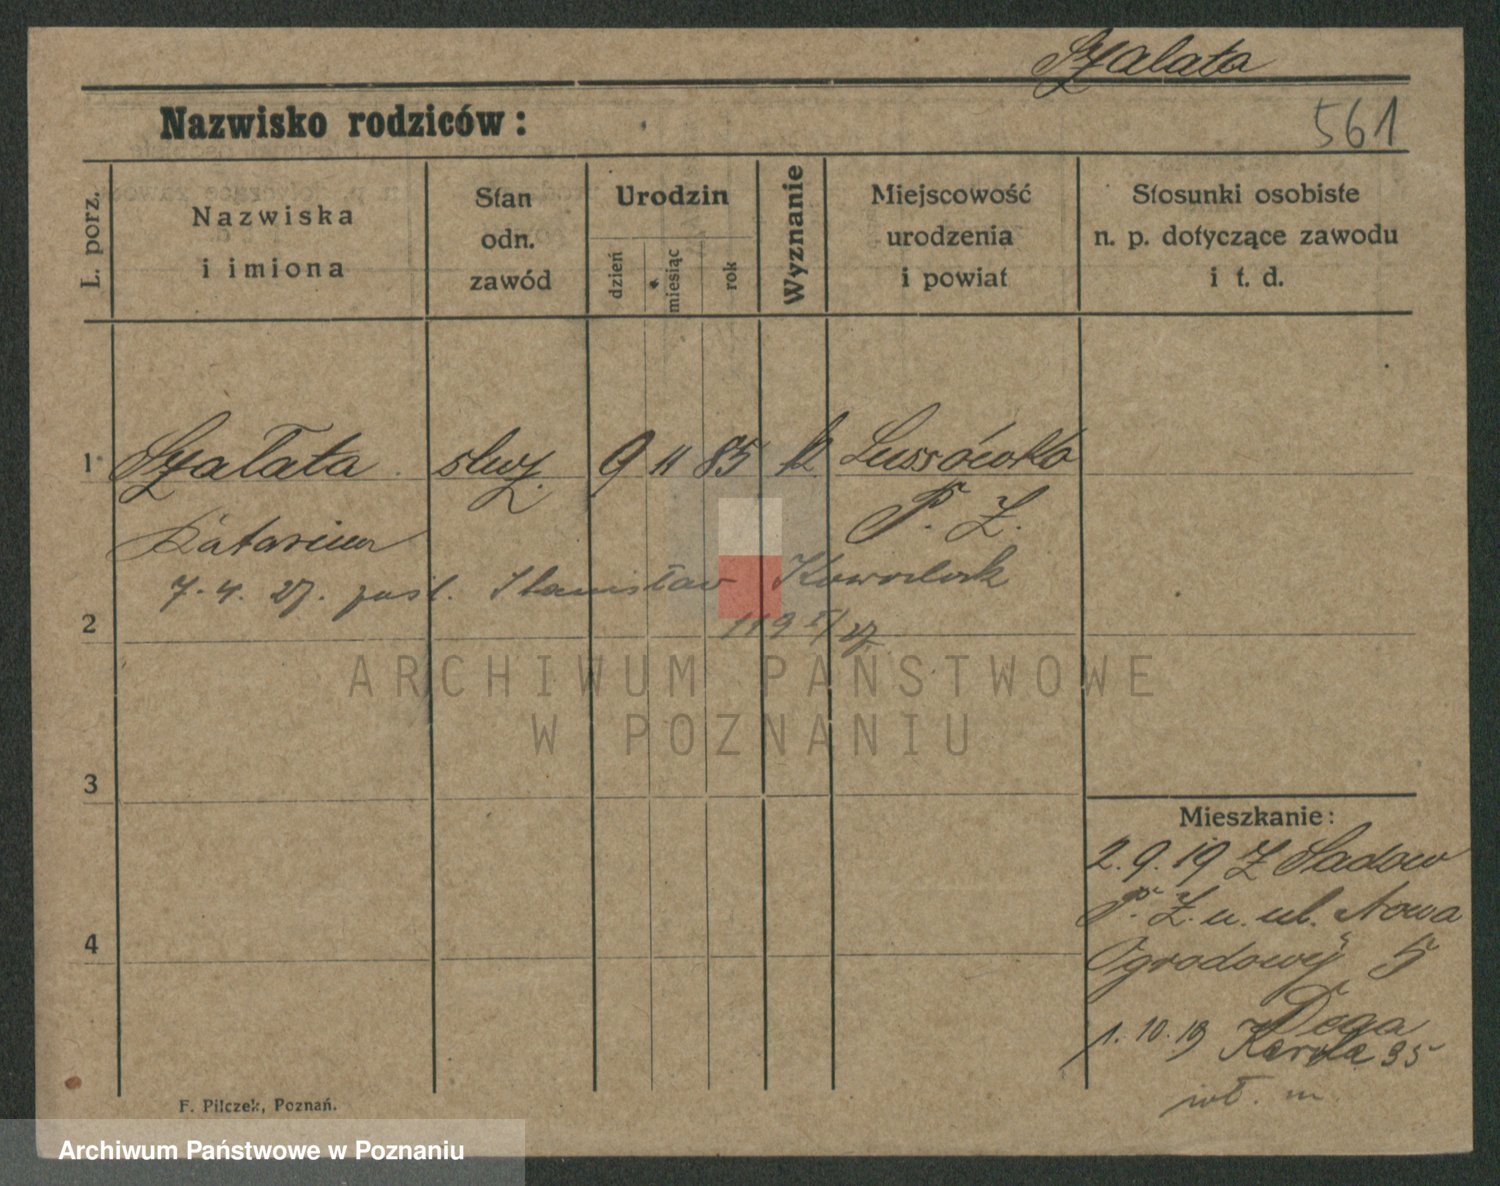 Szalata
Nazwisko rodziców:
561
L. porz.
Nazwiska
i imiona
Stan
odn.
zawód
Urodzin
dzień
miesiąc
rok
Wyznanie
Miejscowość
urodzenia
i powiat
Stosunki osobiste
n. p. dotyczące zawodu
i t. d.
1 Szałata służ. 9 11 85 k Lussówko
Katarina P. Z.
7. 4. 27. pośl. Stanisław
2
119
3
4
ARCHIWUM PAŃSTWOWE
W POZNANIU
Mieszkanie:
2. 9. 19 Z Sadow
P. Z. u. ul. Nowa
Ogrodowej 5
Dega
1. 10. 19 Karola 35
wł. m
F. Pilczek, Poznań.
Archiwum Państwowe w Poznaniu